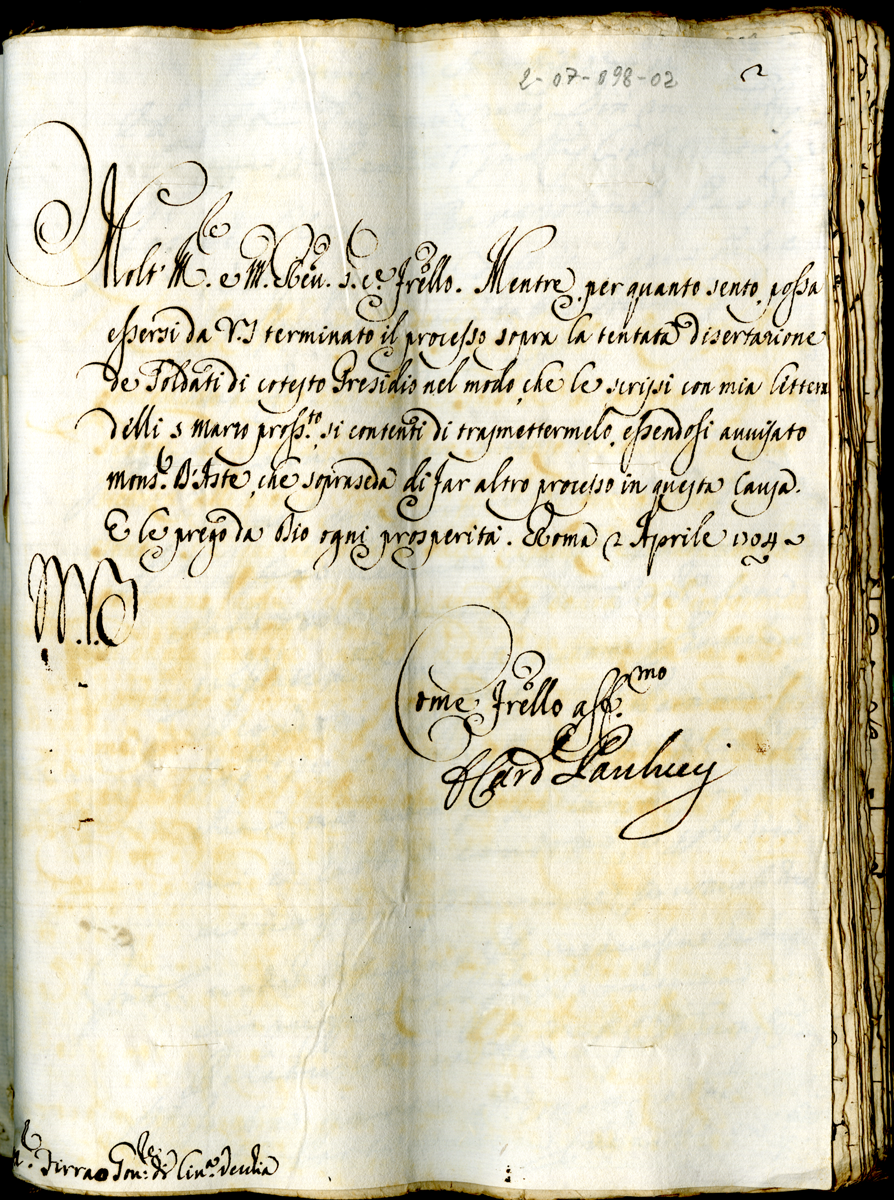 2-07-098-02 2
Molt' Ill.re e M. Reu. s.r e fr̃ello. Mentre, per quanto sento, possa
essersi da V.S terminato il processo sopra la tentata disertazione
de Soldati di cotesto Presidio nel modo, che le scrissi con mia lettera
delli 5 Marzo pross.to, si contenti di trasmettermelo, essendosi auuisato
mons.r D'Aste, che sopraseda di far altro processo in questa Causa.
E le prego da Dio ogni prosperità. Roma 2 Aprile 1704
Come fr̃ello aff.mo
Card Paulucij
Gou.re di Ciu.a Vecchia